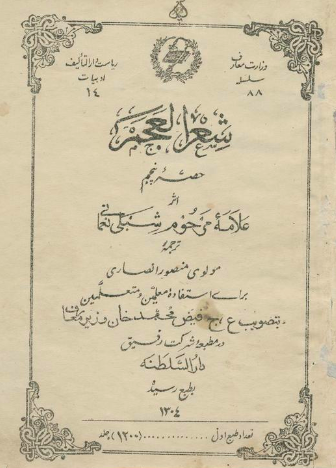 وزارت معارف
سلسله
۸۸
ریاست دارالتألیف
ادبیات
۱۴
شعر العجم
حصهٔ پنجم
اثر
علامهٔ مرحوم شبلی نعمانی
ترجمهٔ
مولوی منصور انصاری
برای استفادهٔ معلمین و متعلمین
بتصویب ع، ج فیض محمد خان وزیر معارف
در مطبعه شرکت رفیق
دارالسلطنه
بطبع رسید
۱۳۰۴
تعداد طبع اول ............ (۱۲۰۰) جلد